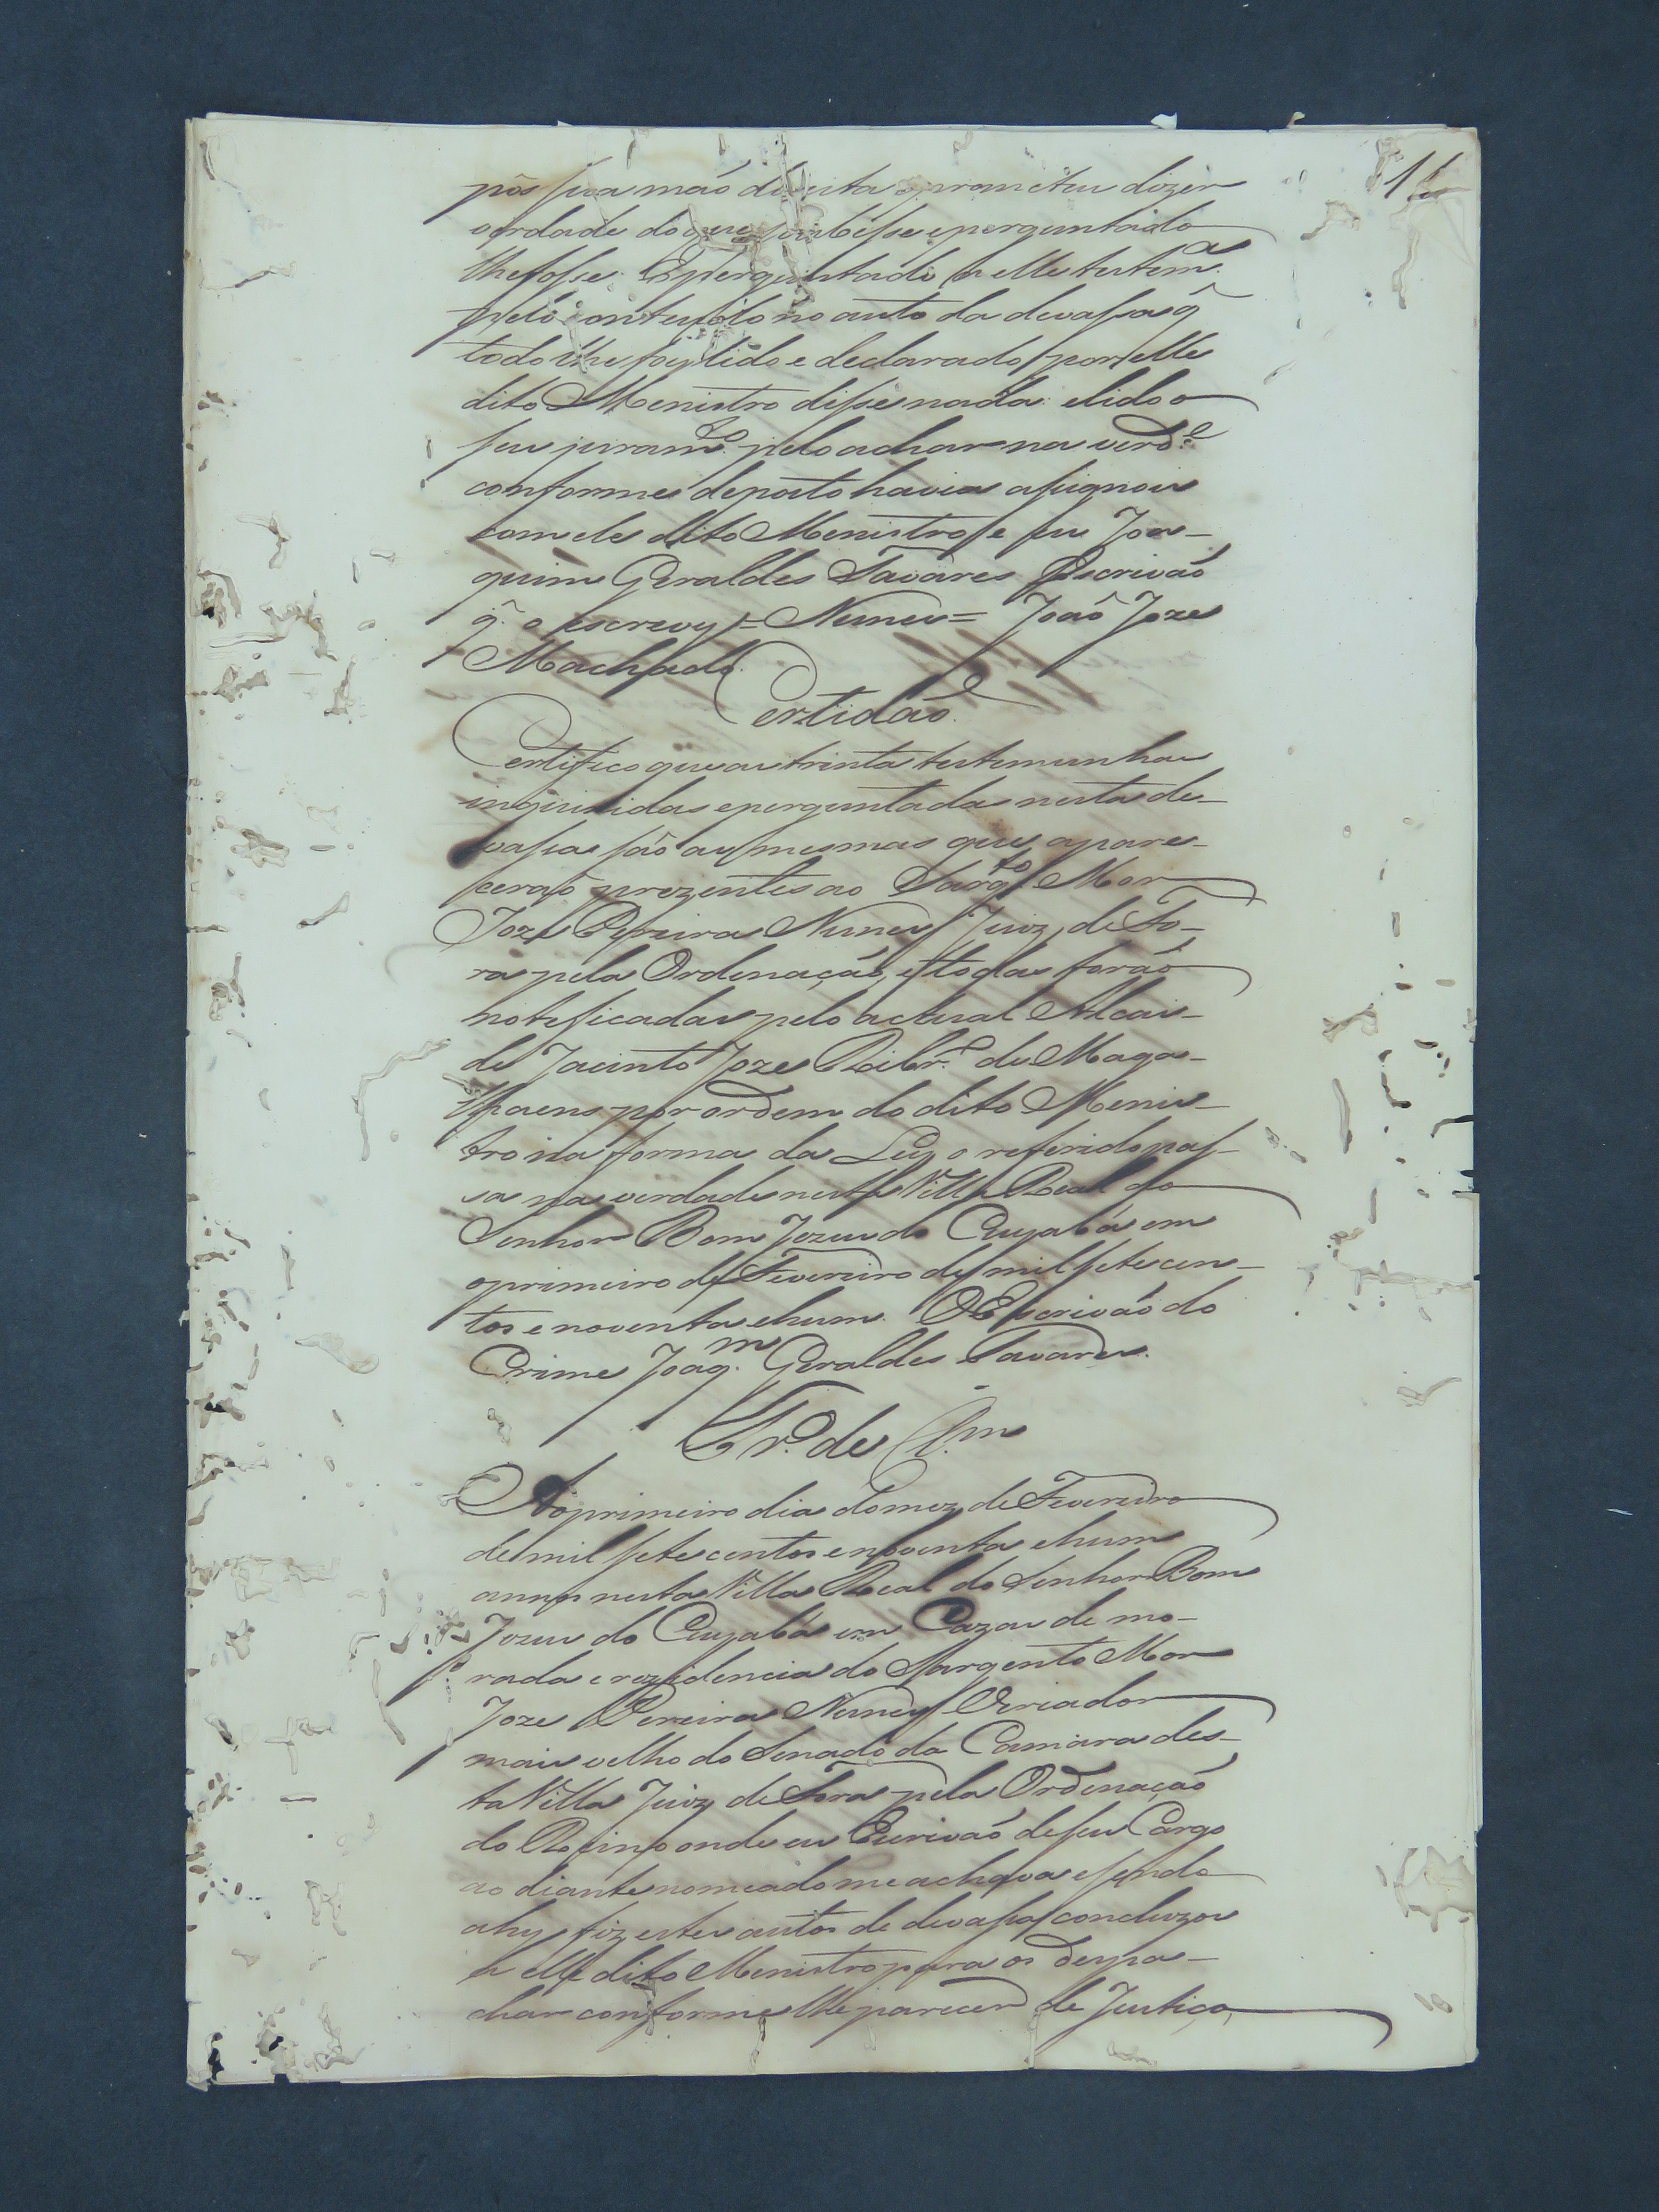 pôs sua maõ direita e prometeu dizer
verdade do que soubesse e perguntado
lhe fosse. E perguntado a elle testem.ᵃ
pelo conteudo no auto da devassa q̃
todo lhe foy lido e declarado por elle
dito Menistro disse nada. e lido o
seu juram.ᵗᵒ pelo achar na verd.ᵉ
conforme deposto havia assignou
com ele dito Menistro e eu Joa-
quim Geraldes Tavares Escrivaõ
q̃ o escrevy = Nunes = Joaõ Joze
Machado.
Certidaõ.
Certifico que as trinta testemunhas
inquiridas e perguntadas nesta de-
vassa saõ as mesmas que apare-
ceraõ prezentes ao Sarg.ᵗᵒ Mor
Joze Pereira Nunes Juiz de Fo-
ra pela Ordenaçaõ, e todas foraõ
noteficadas pelo actual Alcai-
de Jacinto Joze Ribr.º de Maga-
lhaens por ordem do dito Menis-
tro na forma da Ley o referido pas-
sa na verdade nesta Villa Real do
Senhor Bom Jezus do Cuyabá em
o primeiro de Fevereiro de mil sete cen-
tos e noventa e hum. O Escrivaõ do
Crime Joaq.ᵐ Geraldes Tavares.
Tr.º de Cl.ᵐ
Ao primeiro dia do mez de Fevereiro
de mil sete centos e noventa e hum
annos nesta Villa Real do Senhor Bom
Jezus do Cuyabá em Cazas de mo-
rada e rezidencia do Sargento Mor
Joze Pereira Nunes Veriador
mais velho do Senado da Camara des-
ta Villa Juiz de Fora pela Ordenaçaõ
do Reino onde eu Escrivaõ de seu Cargo
ao diante nomeado me achava e sendo
ahy fiz estes autos de devassa concluzos
a elle dito Menistro para os despa-
char conforme lhe parecer de Justiça,